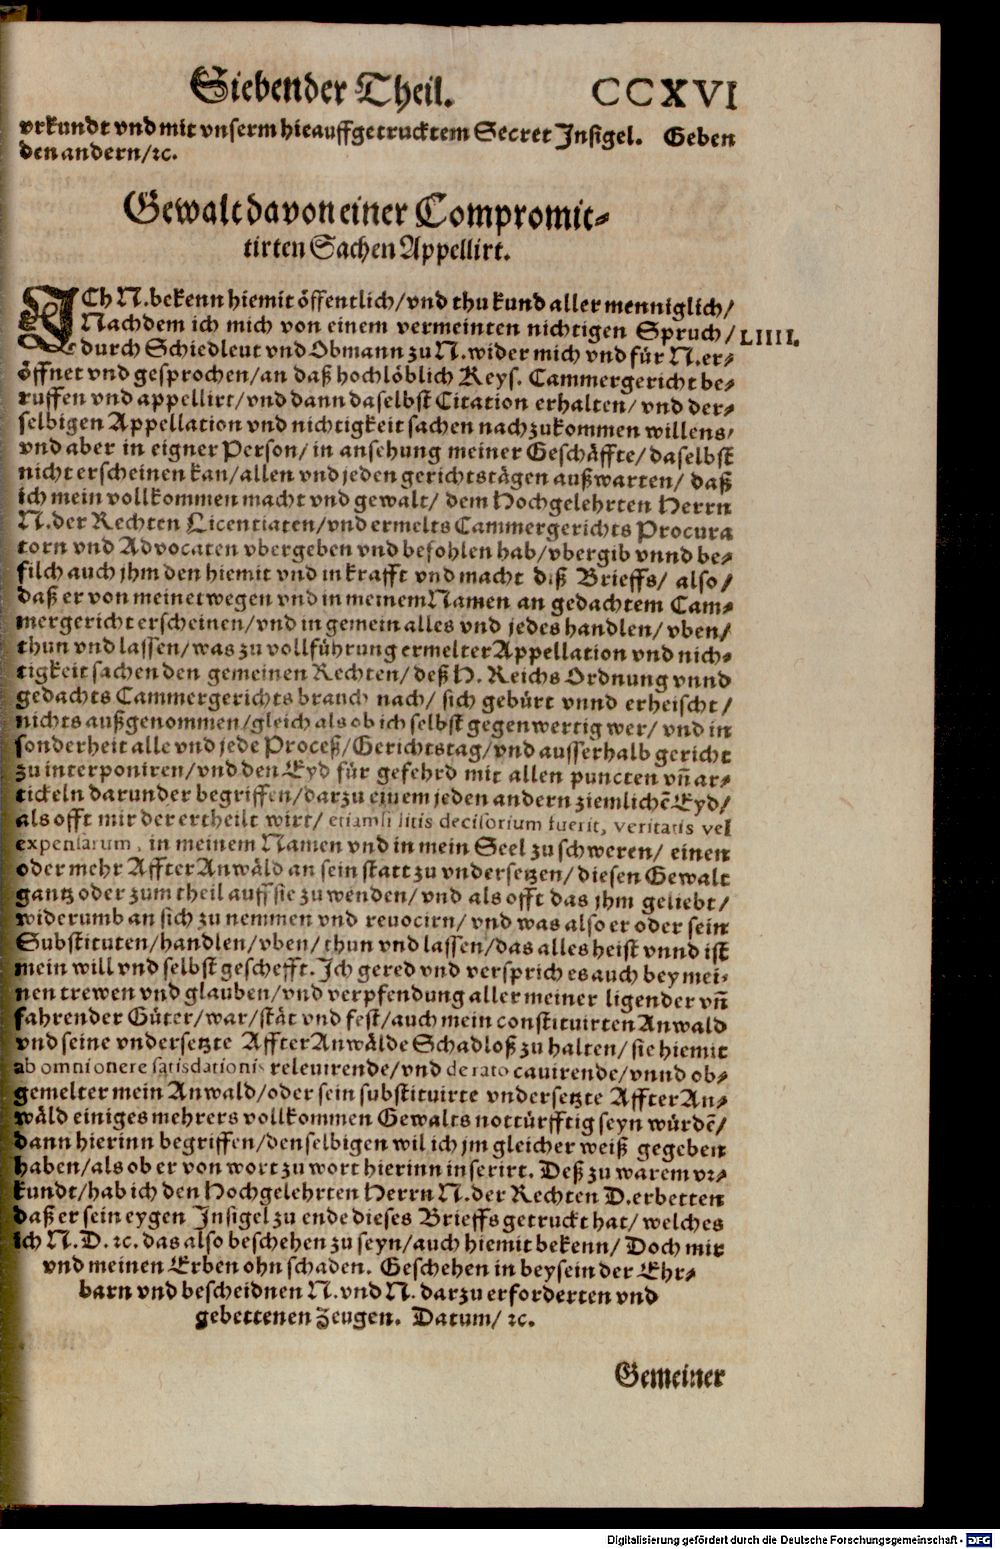 Siebender Theil. CCXVI
vrkundt vnd mit vnserm hieauffgetrucktem Secret Jnsigel. Geben
den andern/ ꝛc.
Gewalt davon einer Compromit⸗
tirten Sachen Appellirt.
JCh N. bekenn hiemit öffentlich/ vnd thu kund aller menniglich/
Nachdem ich mich von einem vermeinten nichtigen Spruch/ LIIII.
durch Schiedleut vnd Obmann zu N. wider mich vnd für N. er⸗
öffnet vnd gesprochen/ an daß hochlöblich Keys. Cammergericht be⸗
ruffen vnd appellirt/ vnd dann daselbst Citation erhalten/ vnd der⸗
selbigen Appellation vnd nichtigkeit sachen nachzukommen willens/
vnd aber in eigner Person/ in ansehung meiner Geschäffte/ daselbst
nicht erscheinen kan/ allen vnd jeden gerichtstägen außwarten/ daß
ich mein vollkommen macht vnd gewalt/ dem Hochgelehrten Herrn
N. der Rechten Licentiaten/ vnd ermelts Cammergerichts Procura
torn vnd Advocaten vbergeben vnd befohlen hab/ vbergib vnnd be⸗
filch auch jhm den hiemit vnd in krafft vnd macht diß Brieffs/ also/
daß er von meinetwegen vnd in meinem Namen an gedachtem Cam⸗
mergericht erscheinen/ vnd in gemein alles vnd jedes handlen/ vben/
thun vnd lassen/ was zu vollführung ermelter Appellation vnd nich⸗
tigkeit sachen den gemeinen Rechten/ deß H. Reichs Ordnung vnnd
gedachts Cammergerichts brauch nach/ sich gebürt vnnd erheischt/
nichts außgenommen/ gleich als ob ich selbst gegenwertig wer/ vnd in
sonderheit alle vnd jede Proceß/ Gerichtstag/ vnd ausserhalb gericht
zu interponiren/ vnd den Eyd für gefehrd mit allen puncten vñ ar⸗
tickeln darunder begriffen/ darzu einem jeden andern ziemlichẽ Eyd/
als offt mir der ertheilt wirt/ etiamsi litis decisorium fuerit, veritatis vel
expensarum, in meinem Namen vnd in mein Seel zu schweren/ einen
oder mehr Affter Anwäld an sein statt zu vndersetzen/ diesen Gewalt
gantz oder zum theil auff sie zu wenden/ vnd als offt das jhm geliebt/
widerumb an sich zu nemmen vnd reuocirn/ vnd was also er oder sein
Substituten/ handlen/ vben/ thun vnd lassen/ das alles heist vnnd ist
mein will vnd selbst geschefft. Jch gered vnd versprich es auch bey mei⸗
nen trewen vnd glauben/ vnd verpfendung aller meiner ligender vñ
fahrender Güter/ war/ stät vnd fest/ auch mein constituirten Anwald
vnd seine vndersetzte Affter Anwälde Schadloß zu halten/ sie hiemit
ab omni onere satisdationis releuirende/ vnd de rato cauirende/ vnnd ob⸗
gemelter mein Anwald/ oder sein substituirte vndersetzte Affter An⸗
wäld einiges mehrers vollkommen Gewalts nottürfftig seyn würdẽ/
dann hierinn begriffen/ denselbigen wil ich jm gleicher weiß gegeben
haben/ als ob er von wort zu wort hierinn inserirt. Deß zu warem vr⸗
kundt/ hab ich den Hochgelehrten Herrn N. der Rechten D. erbetten
daß er sein eygen Jnsigel zu ende dieses Brieffs getruckt hat/ welches
ich N. D. ꝛc. das also beschehen zu seyn/ auch hiemit bekenn/ Doch mir
vnd meinen Erben ohn schaden. Geschehen in beysein der Ehr⸗
barn vnd bescheidnen N. vnd N. darzu erforderten vnd
gebettenen Zeugen. Datum/ ꝛc.
Gemeiner
Digitalisierung gefördert durch die Deutsche Forschungsgemeinschaft - DFG